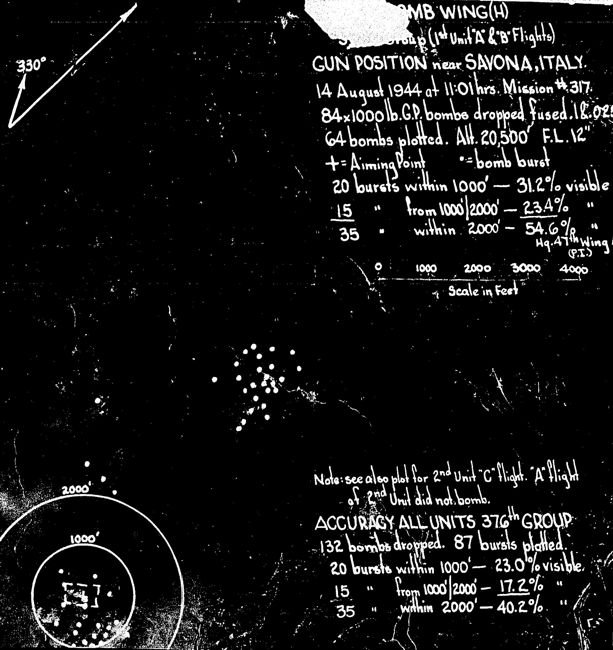 330°
OMB WING(H)
Group (1st Unit "A" & "B" Flights)
GUN POSITION near SAVONA, ITALY.
14 August 1944 at 11:01 hrs. Mission #317.
84x1000 lb. G.P. bombs dropped, fused .1 &.025
64 bombs plotted. Alt. 20,500' F.L. 12"
+ = Aiming Point • = bomb burst
20 bursts within 1000' — 31.2% visible
15 " from 1000'/2000' — 23.4% "
35 " within 2000' — 54.6% "
Hq. 47th Wing
(P.I.)
0 1000 2000 3000 4000
Scale in Feet
Note: see also plot for 2nd Unit "C" flight. "A" flight
of 2nd Unit did not bomb.
2000'
ACCURACY ALL UNITS 376th GROUP
1000'
132 bombs dropped. 87 bursts plotted.
20 bursts within 1000' — 23.0% visible.
15 " from 1000'/2000' — 17.2% "
35 " within 2000' — 40.2% "